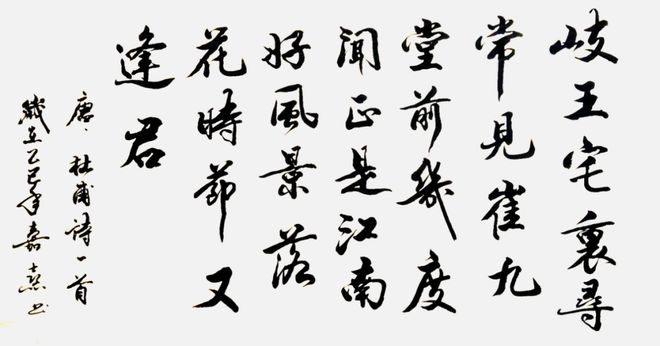 歧王宅裏尋
常見崔九
堂前幾度
聞正是江南
好風景落
花時節又
逢君
唐、杜甫詩一首
歲在乙巳年嘉熹书